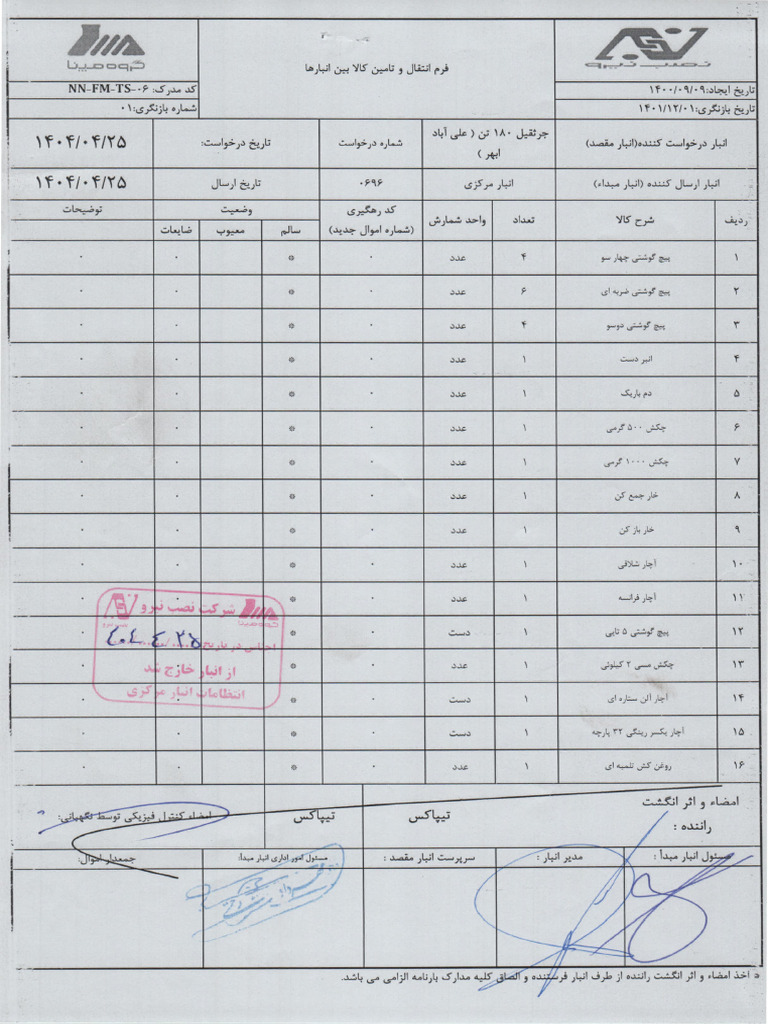 گروه مپنا
فرم انتقال و تامین کالا بین انبارها
نصب نیرو
کد مدرک: NN-FM-TS-۰۶
تاریخ ایجاد:۱۴۰۰/۰۹/۰۹
شماره بازنگری:۰۱
تاریخ بازنگری:۱۴۰۱/۱۲/۰۱
انبار درخواست کننده(انبار مقصد) جرثقیل ۱۸۰ تن ( علی آباد ابهر ) شماره درخواست تاریخ درخواست: ۱۴۰۴/۰۴/۲۵
انبار ارسال کننده (انبار مبداء) انبار مرکزی ۰۶۹۶ تاریخ ارسال ۱۴۰۴/۰۴/۲۵
ردیف شرح کالا تعداد واحد شمارش کد رهگیری (شماره اموال جدید) وضعیت توضیحات
سالم معیوب ضایعات
۱ پیچ گوشتی چهار سو ۴ عدد ۰ * ۰ ۰
۲ پیچ گوشتی ضربه ای ۶ عدد ۰ * ۰ ۰
۳ پیچ گوشتی دوسو ۴ عدد ۰ * ۰ ۰
۴ انبر دست ۱ عدد ۰ * ۰ ۰
۵ دم باریک ۱ عدد ۰ * ۰ ۰
۶ چکش ۵۰۰ گرمی ۱ عدد ۰ * ۰ ۰
۷ چکش ۱۰۰۰ گرمی ۱ عدد ۰ * ۰ ۰
۸ خار جمع کن ۱ عدد ۰ * ۰ ۰
۹ خار باز کن ۱ عدد ۰ * ۰ ۰
۱۰ آچار شلاقی ۱ عدد ۰ * ۰ ۰
۱۱ آچار فرانسه ۱ عدد ۰ * ۰ ۰
۱۲ پیچ گوشتی ۵ تایی ۱ دست ۰ * ۰ ۰
۱۳ چکش مسی ۲ کیلوئی ۱ عدد ۰ * ۰ ۰
۱۴ آچار آلن ستاره ای ۱ دست ۰ * ۰ ۰
۱۵ آچار یکسر رینگی ۳۲ پارچه ۱ دست ۰ * ۰ ۰
۱۶ روغن کش تلمبه ای ۱ عدد ۰ * ۰ ۰
گروه مپنا شرکت نصب نیرو نصب نیرو
اجناس در تاریخ ۴۰۴ ۴ ۲۵
از انبار خارج شد
انتظامات انبار مرکزی
امضاء و اثر انگشت راننده : تیپاکس تیپاکس امضاء کنترل فیزیکی توسط نگهبانی:
مسئول انبار مبدأ : مدیر انبار : سرپرست انبار مقصد : مسئول امور اداری انبار مبدأ: جمعدار اموال:
اخذ امضاء و اثر انگشت راننده از طرف انبار فرستنده و الصاق کلیه مدارک بارنامه الزامی می باشد.